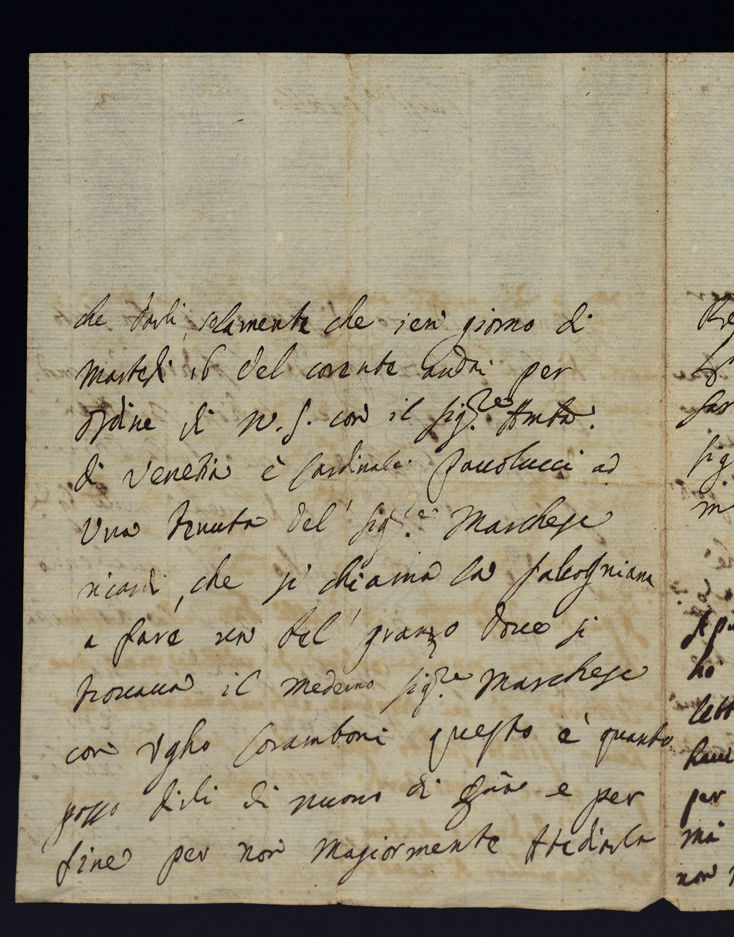 che darli solamente che ieri giorno di Re
Martedi 16 del corente andai per
ordine di N. S. con il sig.re Amba.
di Venetia è Cardinale Paulucci ad
Una tenuta del' sig.re Marchese
ricardi, che si chiama la
a fare un bel' pranzo doue si
trouaua il medemo sig.re Marchese ho
con Vgho Coramboni questo è quanto
posso dirli di nuouo di e per per
fine per non Magiormente Attediarla non